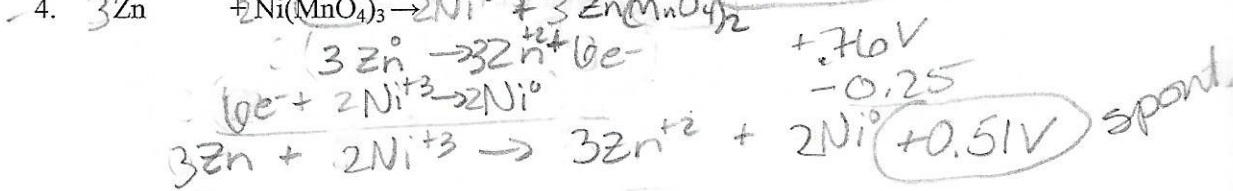 4. 3Zn + 2Ni(MnO₄)₃ → 2Ni + 3 Zn(MnO₄)₂
3 Zn⁰ → 3Zn⁺² + 6e- +.76V
6e- + 2Ni⁺³ → 2Ni⁰ -0.25
3Zn + 2Ni⁺³ → 3Zn⁺² + 2Ni⁰ +0.51V spont.